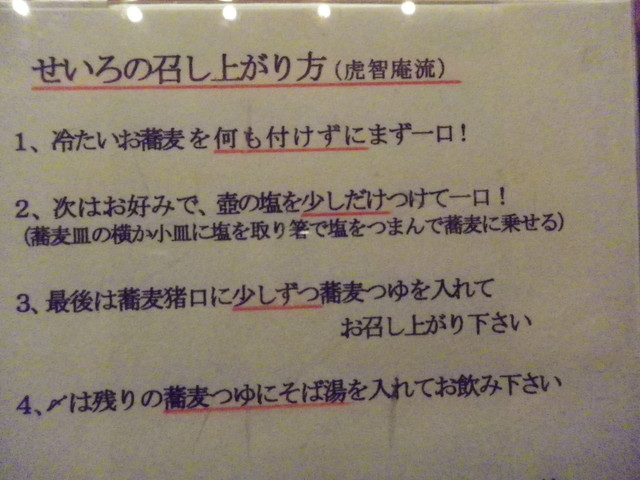 せいろの召し上がり方(虎智庵流)
1、冷たいお蕎麦を何も付けずにまず一口!
2、次はお好みで、壺の塩を少しだけつけて一口!
(蕎麦皿の横か小皿に塩を取り箸で塩をつまんで蕎麦に乗せる)
3、最後は蕎麦猪口に少しずつ蕎麦つゆを入れて
お召し上がり下さい
4、〆は残りの蕎麦つゆにそば湯を入れてお飲み下さい